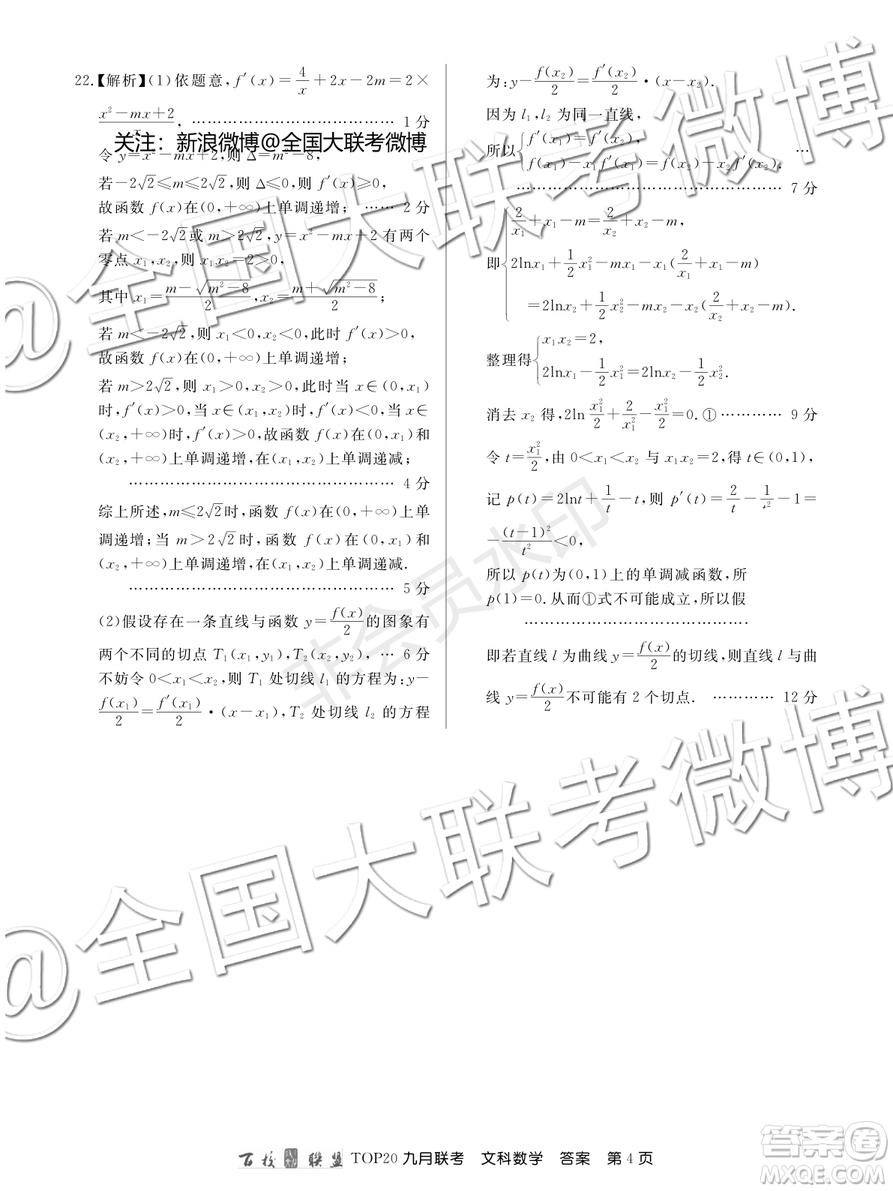 22.【解析】(1)依题意,f′(x)=4/x+2x-2m=2×
(x²-mx+2)/x, ………………………… 1 分
关注：新浪微博@全国大联考微博
令 y=x²-mx+2,则 Δ=m²-8,
若-2√2≤m≤2√2,则 Δ≤0,则 f′(x)≥0,
故函数 f(x)在(0,+∞)上单调递增; …… 2 分
若 m<-2√2或 m>2√2,y=x²-mx+2 有两个
零点 x₁,x₂,则 x₁x₂=2>0,
其中 x₁=(m-√(m²-8))/2,x₂=(m+√(m²-8))/2;
若 m<-2√2,则 x₁<0,x₂<0,此时 f′(x)>0,
故函数 f(x)在(0,+∞)上单调递增;
若 m>2√2,则 x₁>0,x₂>0,此时当 x∈(0,x₁)
时,f′(x)>0,当 x∈(x₁,x₂)时,f′(x)<0,当 x∈
(x₂,+∞)时,f′(x)>0,故函数 f(x)在(0,x₁)和
(x₂,+∞)上单调递增,在(x₁,x₂)上单调递减;
………………………………… 4 分
综上所述,m≤2√2时,函数 f(x)在(0,+∞)上单
调递增;当 m>2√2时,函数 f(x)在(0,x₁)和
(x₂,+∞)上单调递增,在(x₁,x₂)上单调递减.
………………………………… 5 分
(2)假设存在一条直线与函数 y=f(x)/2的图象有
两个不同的切点 T₁(x₁,y₁),T₂(x₂,y₂), … 6 分
不妨令 0<x₁<x₂,则 T₁ 处切线 l₁ 的方程为:y-
f(x₁)/2=f′(x₁)/2·(x-x₁),T₂ 处切线 l₂ 的方程
为:y-f(x₂)/2=f′(x₂)/2·(x-x₂).
因为 l₁,l₂ 为同一直线,
所以{f′(x₁)=f′(x₂) …
f(x₁)-x₁f′(x₁)=f(x₂)-x₂f′(x₂).
………………………………… 7 分
即{2/x₁+x₁-m=2/x₂+x₂-m,
2lnx₁+1/2x₁²-mx₁-x₁(2/x₁+x₁-m)
=2lnx₂+1/2x₂²-mx₂-x₂(2/x₂+x₂-m).
整理得{x₁x₂=2,
2lnx₁-1/2x₁²=2lnx₂-1/2x₂².
消去 x₂ 得,2ln x₁²/2+2/x₁²-x₁²/2=0.① ………… 9 分
令 t=x₁²/2,由 0<x₁<x₂ 与 x₁x₂=2,得 t∈(0,1),
记 p(t)=2lnt+1/t-t,则 p′(t)=2/t-1/t²-1=
-(t-1)²/t²<0,
所以 p(t)为(0,1)上的单调减函数,所
p(1)=0.从而①式不可能成立,所以假
…………………………
即若直线 l 为曲线 y=f(x)/2的切线,则直线 l 与曲
线 y=f(x)/2不可能有 2 个切点. ………… 12 分
@全国大联考微博
@全国大联考微博
非会员水印
百校联盟 TOP20 九月联考 文科数学 答案 第 4 页
答案卷
MXQE.COM